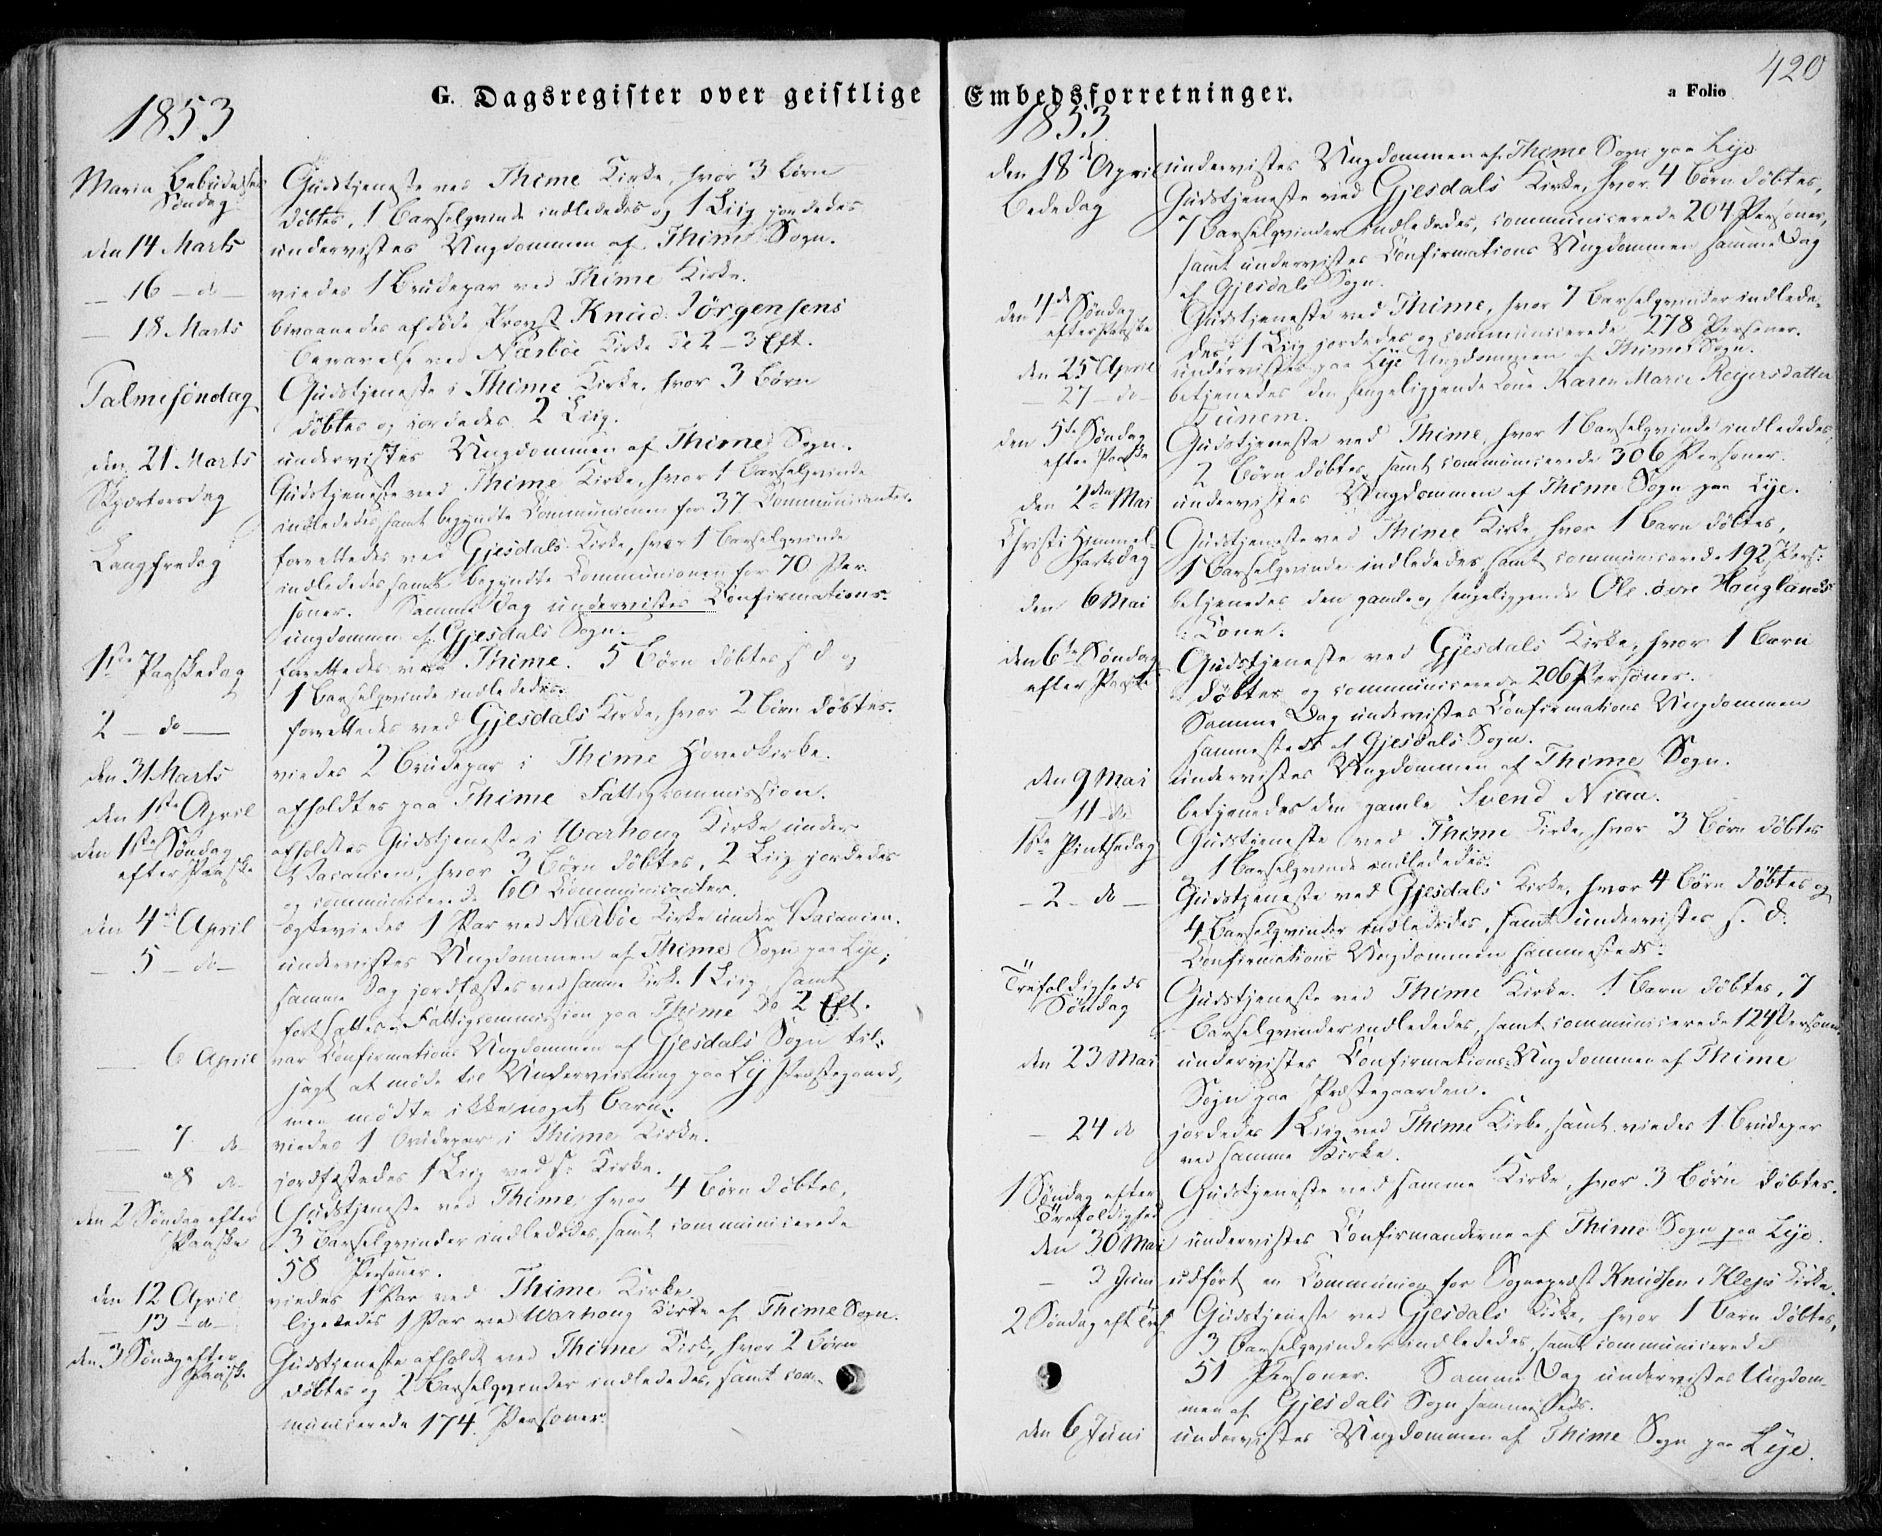 G. Dagsregister over geistlige Embedsforretninger.
a Folio
420
1853
Maria Bebudelses Gudstjeneste ved Thime Kirke, hvor 3 Børn
Søndag døbtes, 1 Barselqvinde indlededes og 1 Liig jordedes
den 14 Marts undervistes Ungdommen af Thime Sogn.
— 16 — do — viedes 1 Brudepar ved Thime Kirke.
— 18 Marts bivaanedes afdøde Provst Knud Jörgensens
Begravelse ved Nærböe Kirke Kl 2–3 Eft.
Palmesöndag Gudstjeneste i Thime Kirke, hvor 3 Børn
døbtes og jordedes 2 Liig.
den 21 Marts undervistes Ungdommen af Thime Sogn.
Skjærtorsdag Gudstjeneste ved Thime Kirke, hvor 1 Barselqvinde
indlededes, samt begyndte Communionen for 37 Communicanter.
Langfredag forrettedes ved Gjesdals Kirke, hvor 1 Barselqvinde
indlededes samt begyndte Communionen for 70 Per-
soner. Samme Dag undervistes Confirmations-
ungdommen af Gjesdals Sogn.
1ste Paaskedag forrettedes ved Thime. 5 Børn døbtes s. d. og
1 Barselqvinde indlededes.
2 — do — forrettedes ved Gjesdals Kirke, hvor 2 Børn døbtes.
den 31 Marts viedes 2 Brudepar i Thime Hovedkirke.
den 1ste April afholdtes paa Thime Fattigcommission.
den 1ste Søndag afholdtes Gudstjeneste i Warhoug Kirke under
efter Paaske Vacancen, hvor 3 Børn døbtes, 2 Liig jordedes
og communicerede 60 Communicanter.
den 4de April ægteviedes 1 Par ved Nærböe Kirke under Vacancen.
— 5 — do — undervistes Ungdommen af Thime Sogn paa Lye;
samme Dag jordfæstes ved samme Kirke 1 Liig, samt
fortsattes Fattigcommission paa Thime Kl 2 Eft.
— 6 April var Confirmations Ungdommen af Gjesdals Sogn til-
sagt at møde til Underviisning paa Ly Præstegaard,
men mødte ikke noget Barn.
— 7 do viedes 1 Brudepar i Thime Kirke.
— 8 do jordfæstedes 1 Liig ved s. Kirke.
den 2 Søndag efter Gudstjeneste ved Thime, hvor 4 Børn døbtes,
Paaske 3 Barselqvinder indlededes, samt communicerede
58 Personer.
den 12 April viedes 1 Par ved Thime Kirke
— 13 — do — ligeledes 1 Par ved Warhoug Kirke af Thime Sogn.
den 3 Søndag efter Gudstjeneste afholdt ved Thime Kirke, hvor 2 Børn
Paaske døbtes og 2 Barselqvinder indlededes, samt com-
municerede 174 Personer.
1853
den 18de April undervistes Ungdommen af Thime Sogn paa Lye
Bededag Gudstjeneste ved Gjesdals Kirke, hvor 4 Børn døbtes,
7 Barselqvinder indlededes, communicerede 204 Personer,
samt undervistes Confirmations Ungdommen samme Dag
af Gjesdals Sogn.
den 4de Søndag Gudstjeneste ved Thime, hvor 7 Barselqvinder indlede-
efter Paaske des, 1 Liig jordedes og communicerede 278 Personer.
den 25 April undervistes paa Lye Ungdommen af Thime Sogn.
— 27 — do — betjenedes den sengeliggende Kone Karen Marie Reijersdatter
Tunem.
den 5te Søndag Gudstjeneste ved Thime, hvor 1 Barselqvinde indlededes,
efter Paaske 2 Børn døbtes, samt communicerede 306 Personer.
den 2den Mai undervistes Ungdommen af Thime Sogn paa Lye.
Christi Himmel- Gudstjeneste ved Thime Kirke, hvor 1 Barn døbtes,
fartsdag 1 Barselqvinde indlededes, samt communicerede 192 Pers.
den 6 Mai betjenedes den gamle og sengeliggende Ole övre Houglands
Kone.
den 6te Søndag Gudstjeneste ved Gjesdals Kirke, hvor 1 Barn
efter Paaske døbtes og communicerede 206 Personer.
Samme Dag undervistes Confirmations Ungdommen
sammesteds af Gjesdals Sogn.
den 9 Mai undervistes Ungdommen af Thime Sogn.
11 do betjenedes den gamle Svend Niaa.
1ste Pintsedag Gudstjeneste ved Thime Kirke, hvor 3 Børn døbtes
og 1 Barselqvinde indlededes.
— 2 — do — Gudstjeneste ved Gjesdals Kirke, hvor 4 Børn døbtes og
4 Barselqvinder indlededes, samt undervistes s. d.
Confirmations Ungdommen sammesteds.
Trefoldigheds Gudstjeneste ved Thime Kirke. 1 Barn døbtes, 7
Søndag Barselqvinder indlededes, samt communicerede 124 Personer.
den 23 Mai undervistes Confirmations-Ungdommen af Thime
Sogn paa Præstegaarden.
— 24 do jordedes 1 Liig ved Thime Kirke, samt viedes 1 Brudepar
ved samme Kirke.
1 Søndag efter Gudstjeneste ved samme Kirke, hvor 3 Børn døbtes.
Trefoldighed
den 30 Mai undervistes Confirmanderne af Thime Sogn paa Lye.
— 3 Juni udført en Communion for Sognepræst Knudsen i Klep Kirke.
2 Søndag eft Tref Gudstjeneste ved Gjesdals Kirke, hvor 1 Barn døbtes,
3 Barselqvinder indlededes, samt communicerede
51 Personer. Samme Dag undervistes Ungdom-
men af Gjesdals Sogn sammesteds.
den 6 Juni undervistes Ungdommen af Thime Sogn paa Lye.